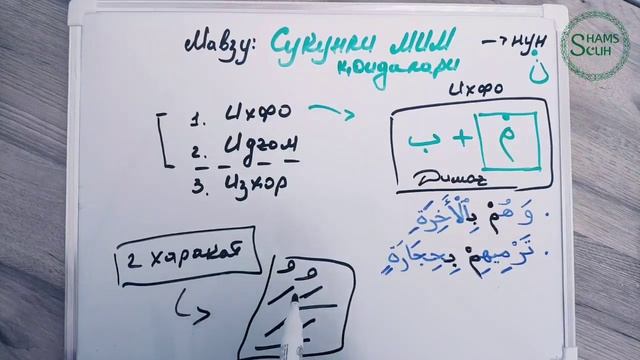 Мавзу: Сукунли МИМ → НУН
қоидалари ن
1. Ихфо
2. Идғом
3. Изҳор
Ихфо
مْ + ب
Димоғ
وَهُمْ بِالْأَخِرَةِ
تَرْمِيهِمْ بِحِجَارَةٍ
2 ҳаракат
SHAMS
CLUH